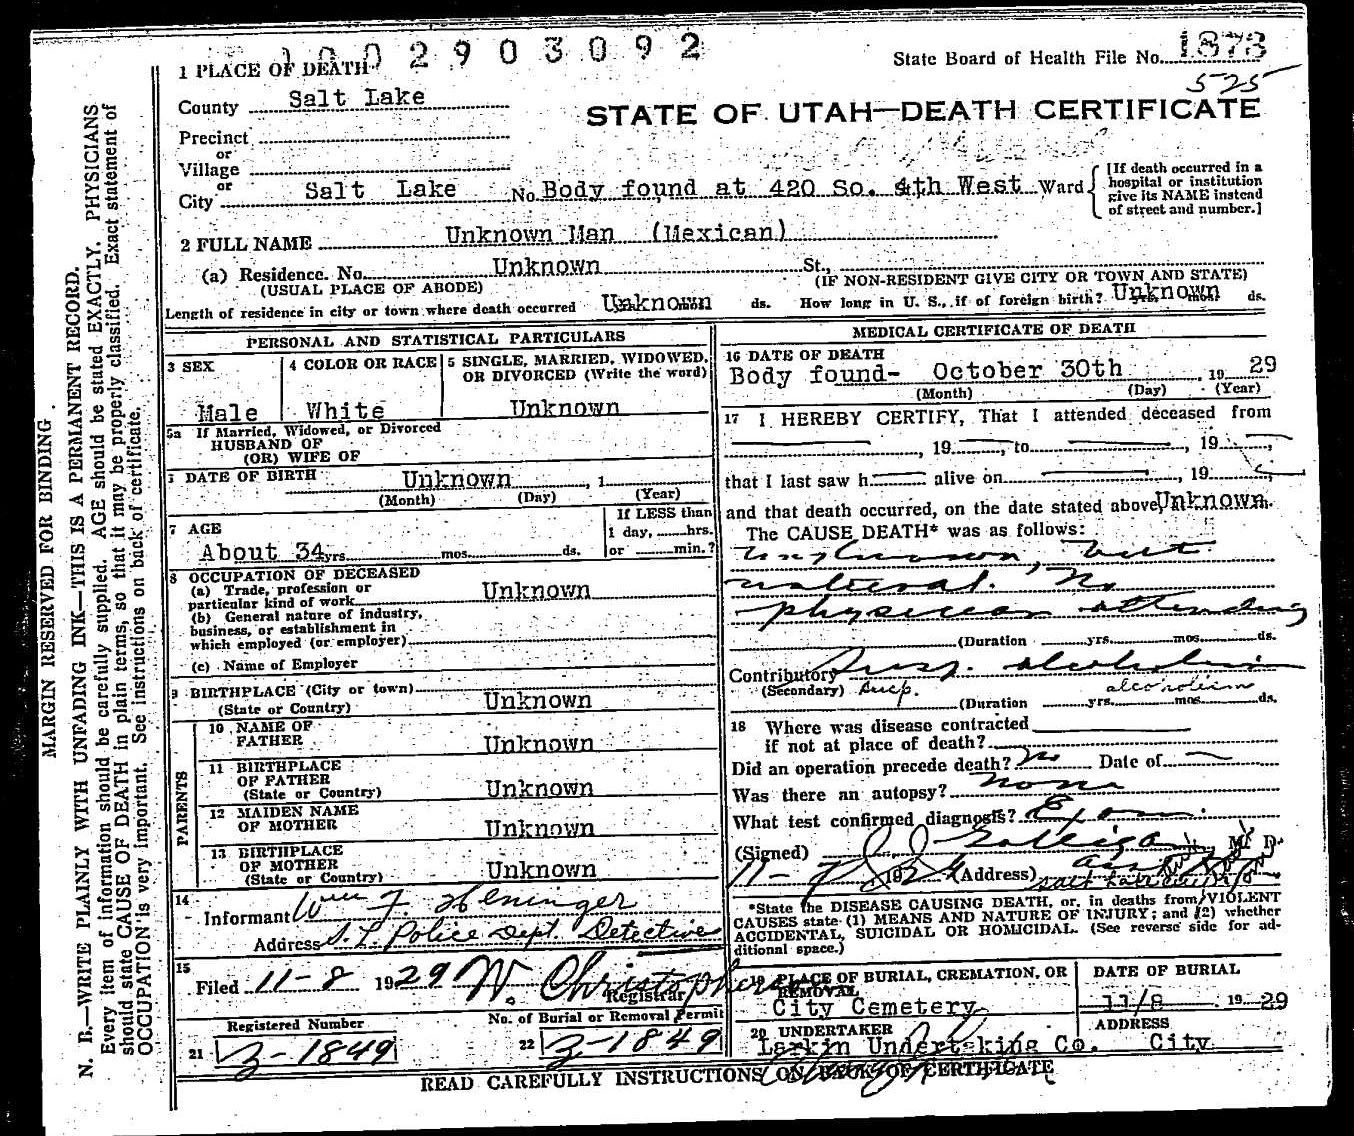 1002903092
State Board of Health File No. 1873
525
1 PLACE OF DEATH
County Salt Lake
STATE OF UTAH—DEATH CERTIFICATE
Precinct
or
Village
or
City Salt Lake No. Body found at 420 So. 4th West Ward
[If death occurred in a hospital or institution give its NAME instead of street and number.]
2 FULL NAME Unknown Man (Mexican)
(a) Residence. No. Unknown St.,
(USUAL PLACE OF ABODE) (IF NON-RESIDENT GIVE CITY OR TOWN AND STATE)
Length of residence in city or town where death occurred Unknown ds. How long in U. S., if of foreign birth? Unknown ds.
PERSONAL AND STATISTICAL PARTICULARS
3 SEX Male
4 COLOR OR RACE White
5 SINGLE, MARRIED, WIDOWED, OR DIVORCED (Write the word) Unknown
5a If Married, Widowed, or Divorced
HUSBAND OF
(OR) WIFE OF
DATE OF BIRTH Unknown, 1
(Month) (Day) (Year)
7 AGE
About 34 yrs. mos. ds.
If LESS than
1 day, hrs.
or min.?
8 OCCUPATION OF DECEASED
(a) Trade, profession or
particular kind of work Unknown
(b) General nature of industry,
business, or establishment in
which employed (or employer)
(c) Name of Employer
9 BIRTHPLACE (City or town)
(State or Country) Unknown
PARENTS
10 NAME OF
FATHER Unknown
11 BIRTHPLACE
OF FATHER
(State or Country) Unknown
12 MAIDEN NAME
OF MOTHER Unknown
13 BIRTHPLACE
OF MOTHER
(State or Country) Unknown
14
Informant Wm F. Heninger
Address S. L. Police Dept. Detective
15
Filed 11-8 1929 W. Christopherson
Registrar
Registered Number
21 Z-1849
No. of Burial or Removal Permit
22 Z-1849
MEDICAL CERTIFICATE OF DEATH
16 DATE OF DEATH
Body found- October 30th, 1929
(Month) (Day) (Year)
17 I HEREBY CERTIFY, That I attended deceased from
, 19 , to , 19
that I last saw h alive on , 19
and that death occurred, on the date stated above, Unknown m.
The CAUSE DEATH* was as follows:
Unknown, but
natural. No
physician attending
(Duration yrs. mos. ds.
Contributory Susp. alcoholism
(Secondary) Susp. alcoholism
(Duration yrs. mos. ds.
18 Where was disease contracted
if not at place of death?
Did an operation precede death? No Date of
Was there an autopsy? None
What test confirmed diagnosis? Exam.
(Signed) J J Galligan, M. D.
11-7, 192 (Address) Salt Lake City
*State the DISEASE CAUSING DEATH, or, in deaths from VIOLENT
CAUSES state (1) MEANS AND NATURE OF INJURY; and (2) whether
ACCIDENTAL, SUICIDAL OR HOMICIDAL. (See reverse side for ad-
ditional space.)
19 PLACE OF BURIAL, CREMATION, OR
REMOVAL
City Cemetery
DATE OF BURIAL
11/8, 1929
20 UNDERTAKER
Larkin Undert-king Co.
ADDRESS
City
READ CAREFULLY INSTRUCTIONS ON BACK OF CERTIFICATE
MARGIN RESERVED FOR BINDING.
N. B.—WRITE PLAINLY WITH UNFADING INK—THIS IS A PERMANENT RECORD.
Every item of information should be carefully supplied. AGE should be stated EXACTLY. PHYSICIANS
should state CAUSE OF DEATH in plain terms, so that it may be properly classified. Exact statement of
OCCUPATION is very important. See instructions on back of certificate.